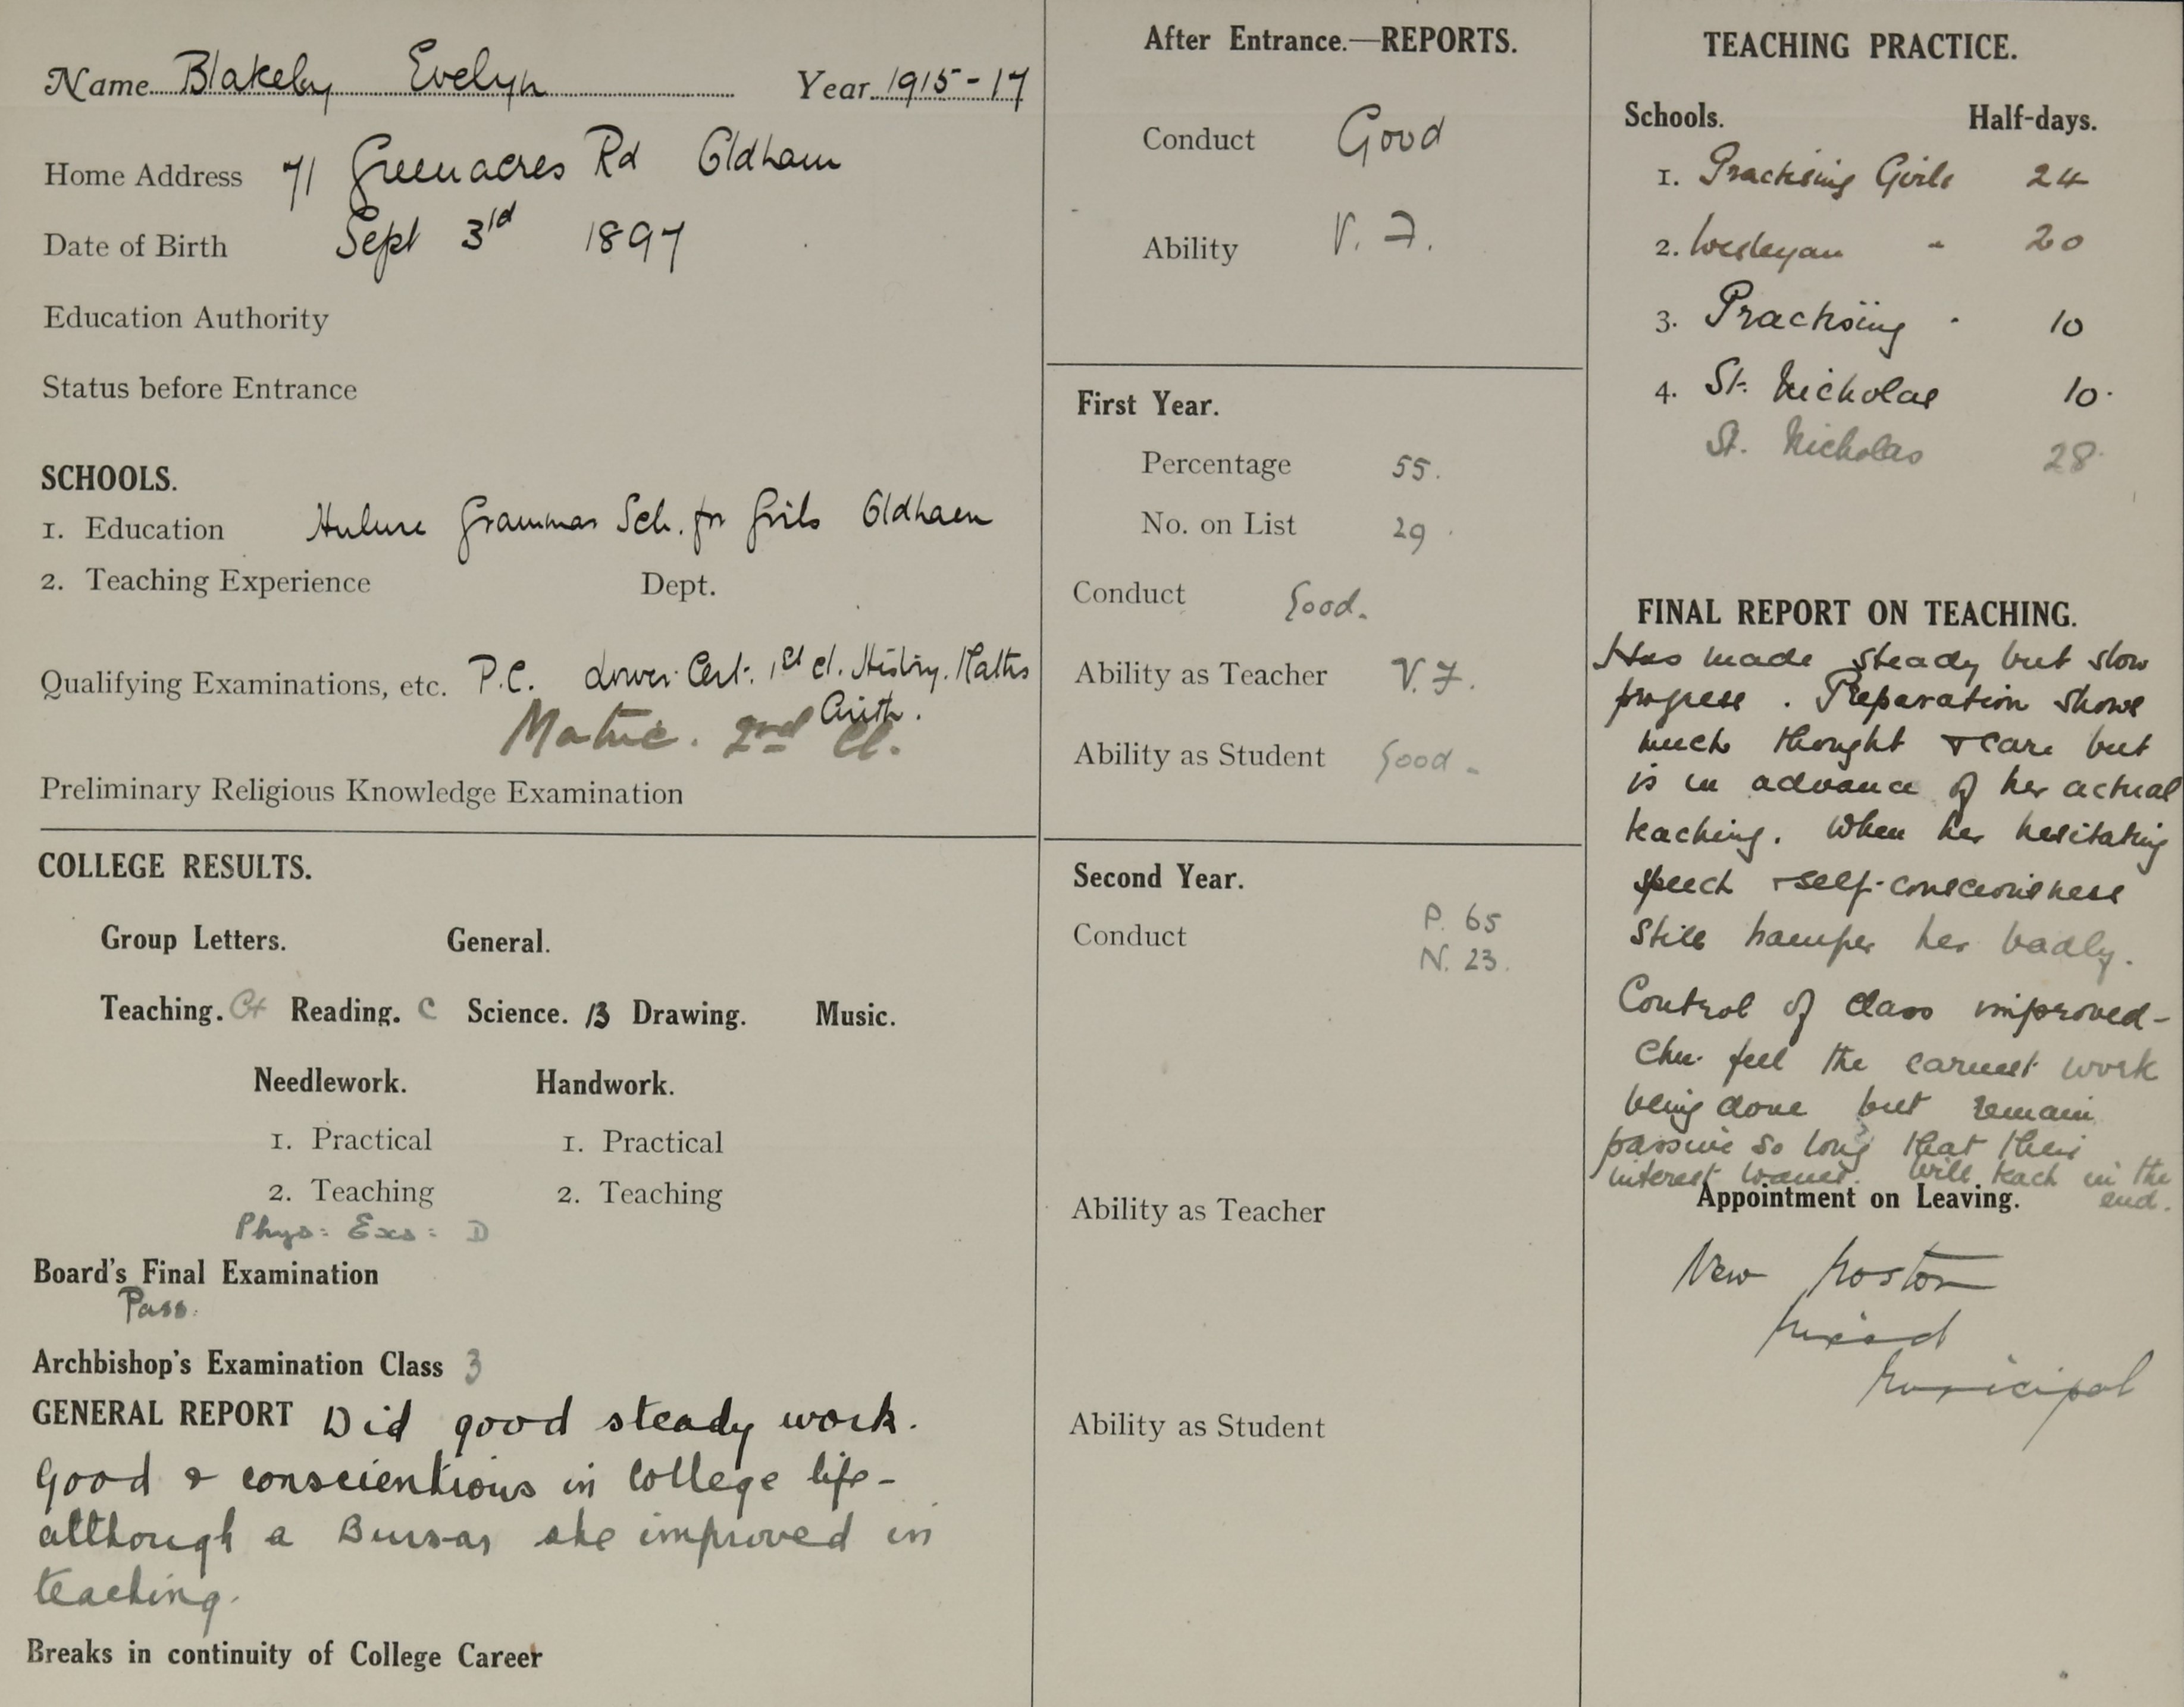 Name Blakeley Evelyn Year 1915-17
Home Address 71 Greenacres Rd Oldham
Date of Birth Sept 3rd 1897
Education Authority
Status before Entrance
SCHOOLS.
1. Education Hulme Grammar Sch. for Girls Oldham
2. Teaching Experience Dept.
Qualifying Examinations, etc. P.C. Lower Cert: 1st cl. History. Maths
Arith.
Matric. 2nd Cl.
Preliminary Religious Knowledge Examination
COLLEGE RESULTS.
Group Letters. General.
Teaching. C+ Reading. C Science. B Drawing. Music.
Needlework. Handwork.
1. Practical 1. Practical
2. Teaching 2. Teaching
Phys: Exs: D
Board's Final Examination
Pass.
Archbishop's Examination Class 3
GENERAL REPORT Did good steady work.
Good & conscientious in College life-
although a Bursar she improved in
teaching.
Breaks in continuity of College Career
After Entrance.—REPORTS.
Conduct Good
Ability V. F.
First Year.
Percentage 55.
No. on List 29
Conduct Good.
Ability as Teacher V.F.
Ability as Student Good.
Second Year.
P. 65
Conduct
N. 23.
Ability as Teacher
Ability as Student
TEACHING PRACTICE.
Schools. Half-days.
1. Practising Girls 24
2. Wesleyan " 20
3. Practising " 10
4. St. Nicholas 10.
St. Nicholas 28.
FINAL REPORT ON TEACHING.
Has made steady but slow
progress. Preparation shows
much thought & care but
is in advance of her actual
teaching. When her hesitating
speech & self-consciousness
still hamper her badly.
Control of class improved-
Chn. feel the earnest work
being done but remain
passive so long that their
interest wanes. Will teach in the
end.
Appointment on Leaving.
New Moston
Mixed
Municipal